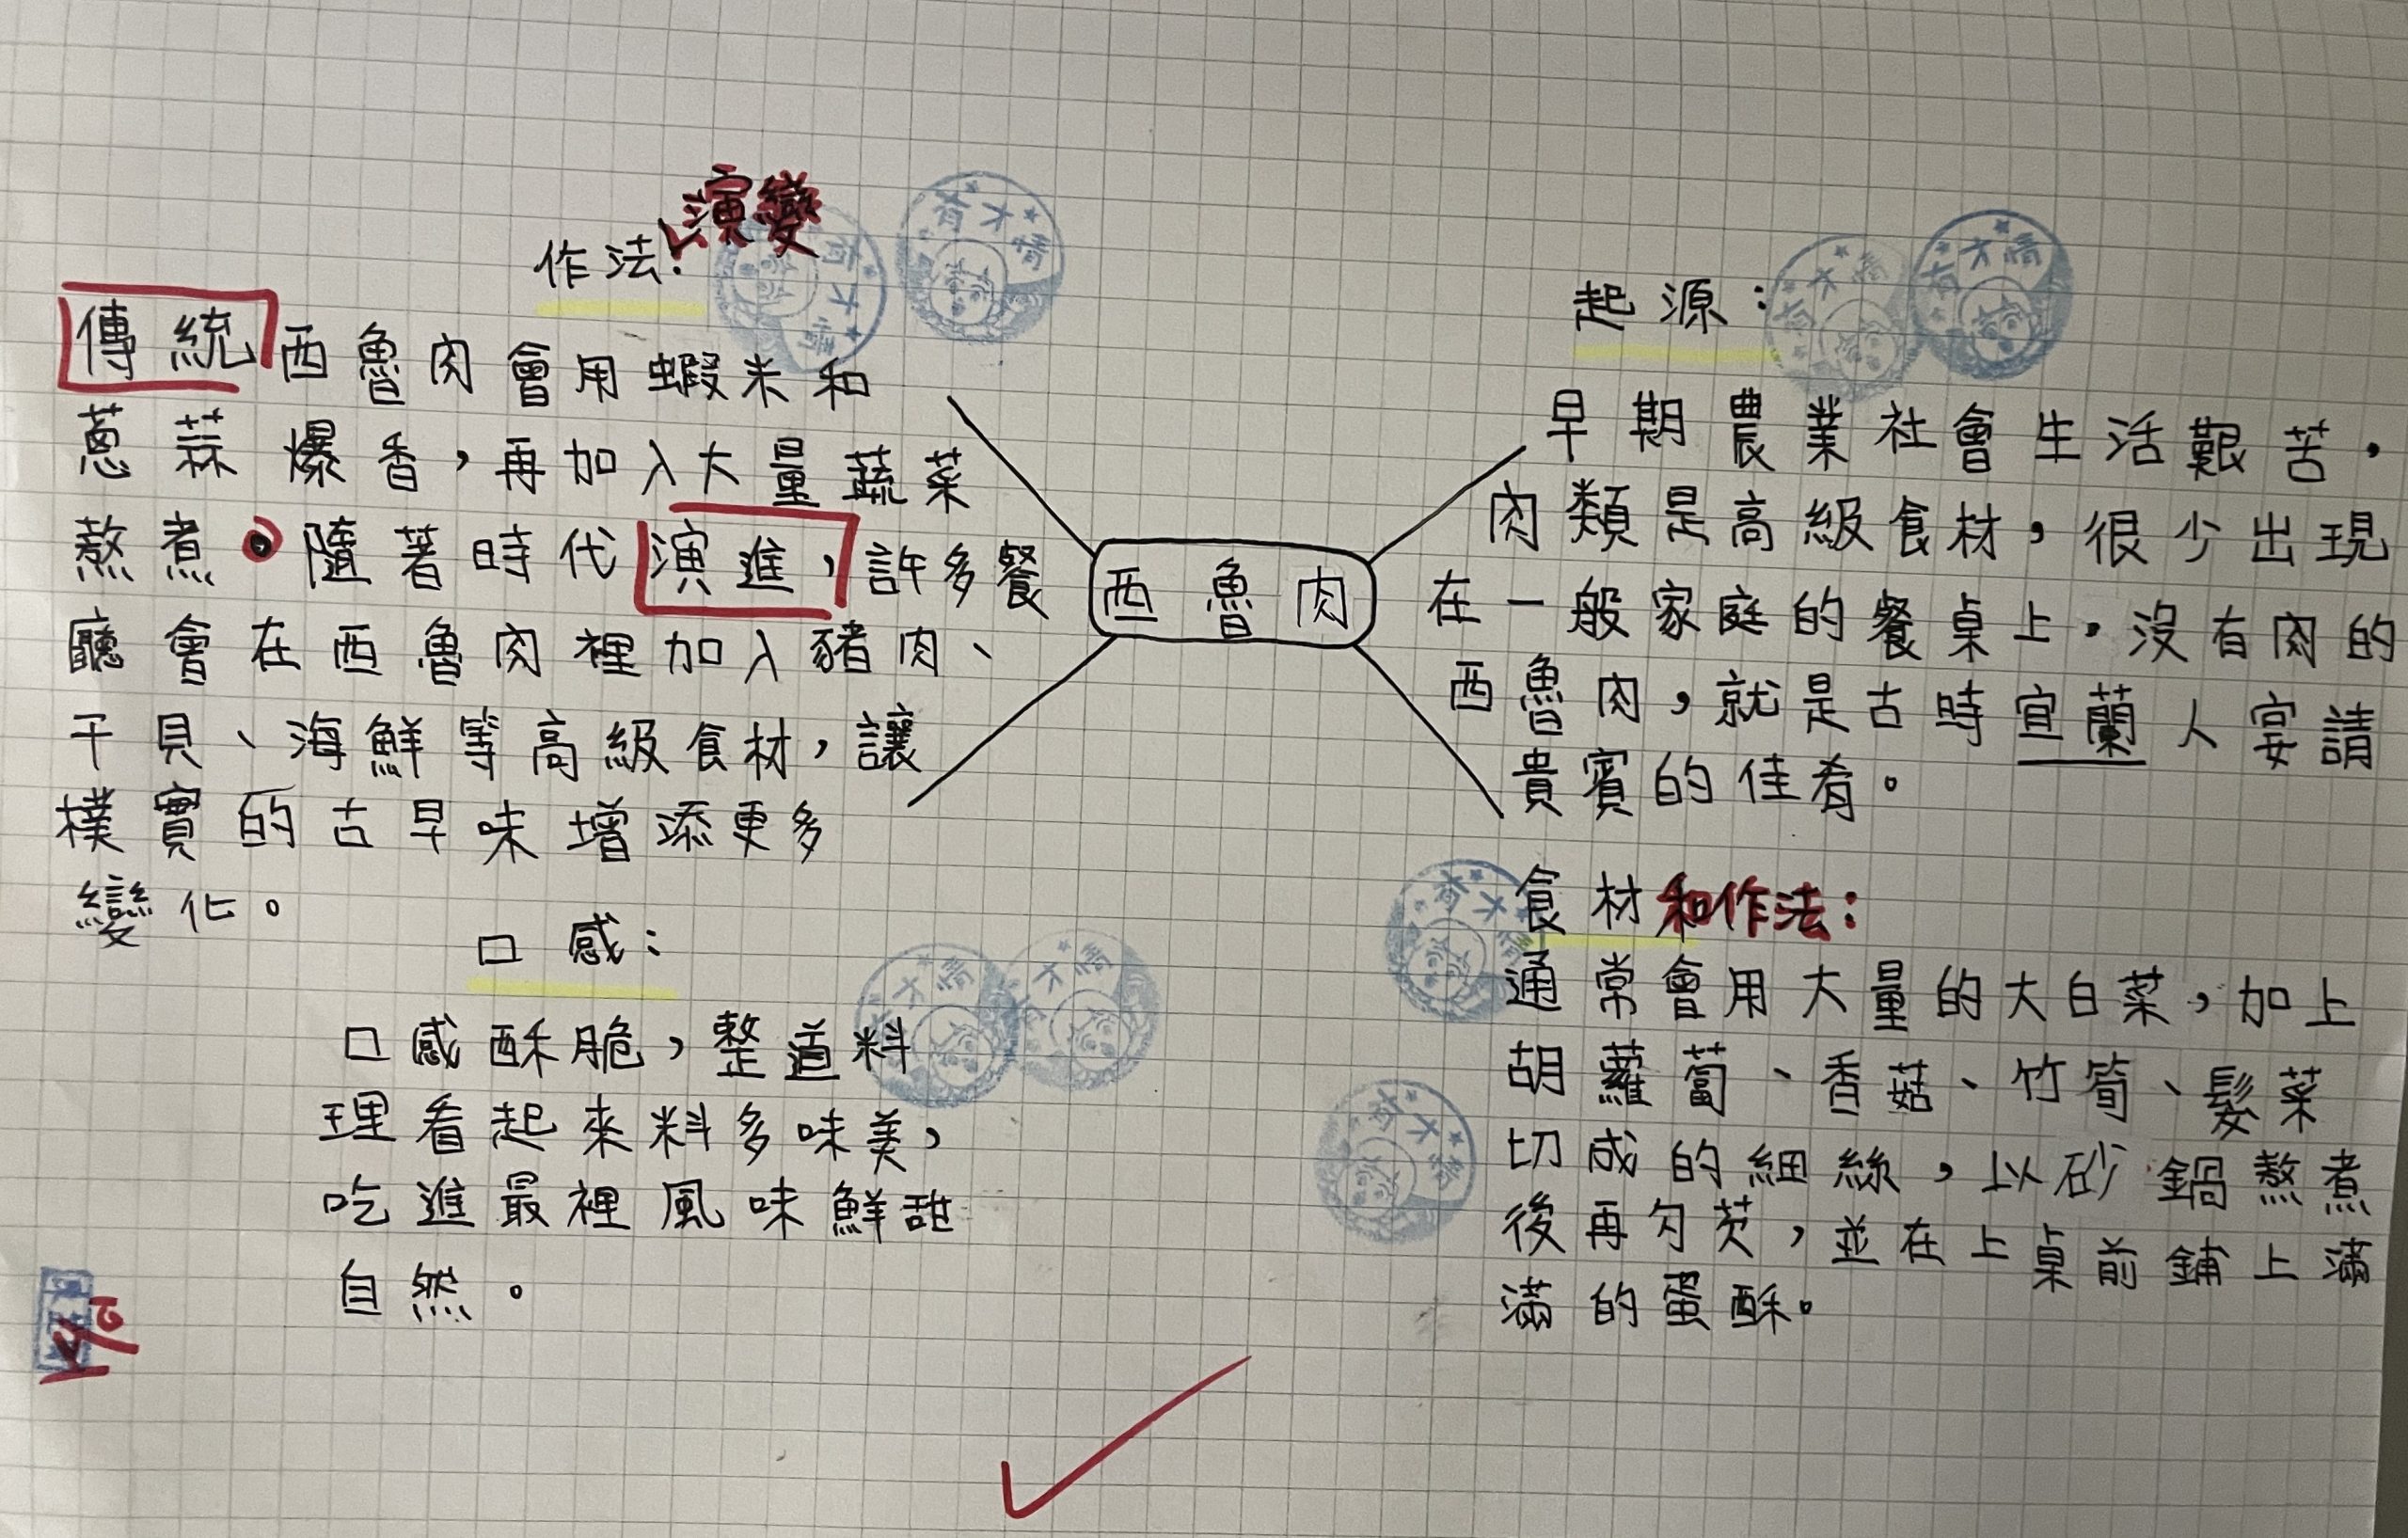 作法:演變
傳統西魯肉會用蝦米和
蔥蒜爆香，再加入大量蔬菜
熬煮。隨著時代演進，許多餐
廳會在西魯肉裡加入豬肉、
干貝、海鮮等高級食材，讓
樸實的古早味增添更多
變化。
口感:
口感酥脆，整道料
理看起來料多味美，
吃進最裡風味鮮甜
自然。
西魯肉
起源:
早期農業社會生活艱苦，
肉類是高級食材，很少出現
在一般家庭的餐桌上，沒有肉的
西魯肉，就是古時宜蘭人宴請
貴賓的佳肴。
食材和作法:
通常會用大量的大白菜，加上
胡蘿蔔、香菇、竹筍、髮菜
切成的細絲，以砂鍋熬煮
後再勾芡，並在上桌前鋪上滿
滿的蛋酥。